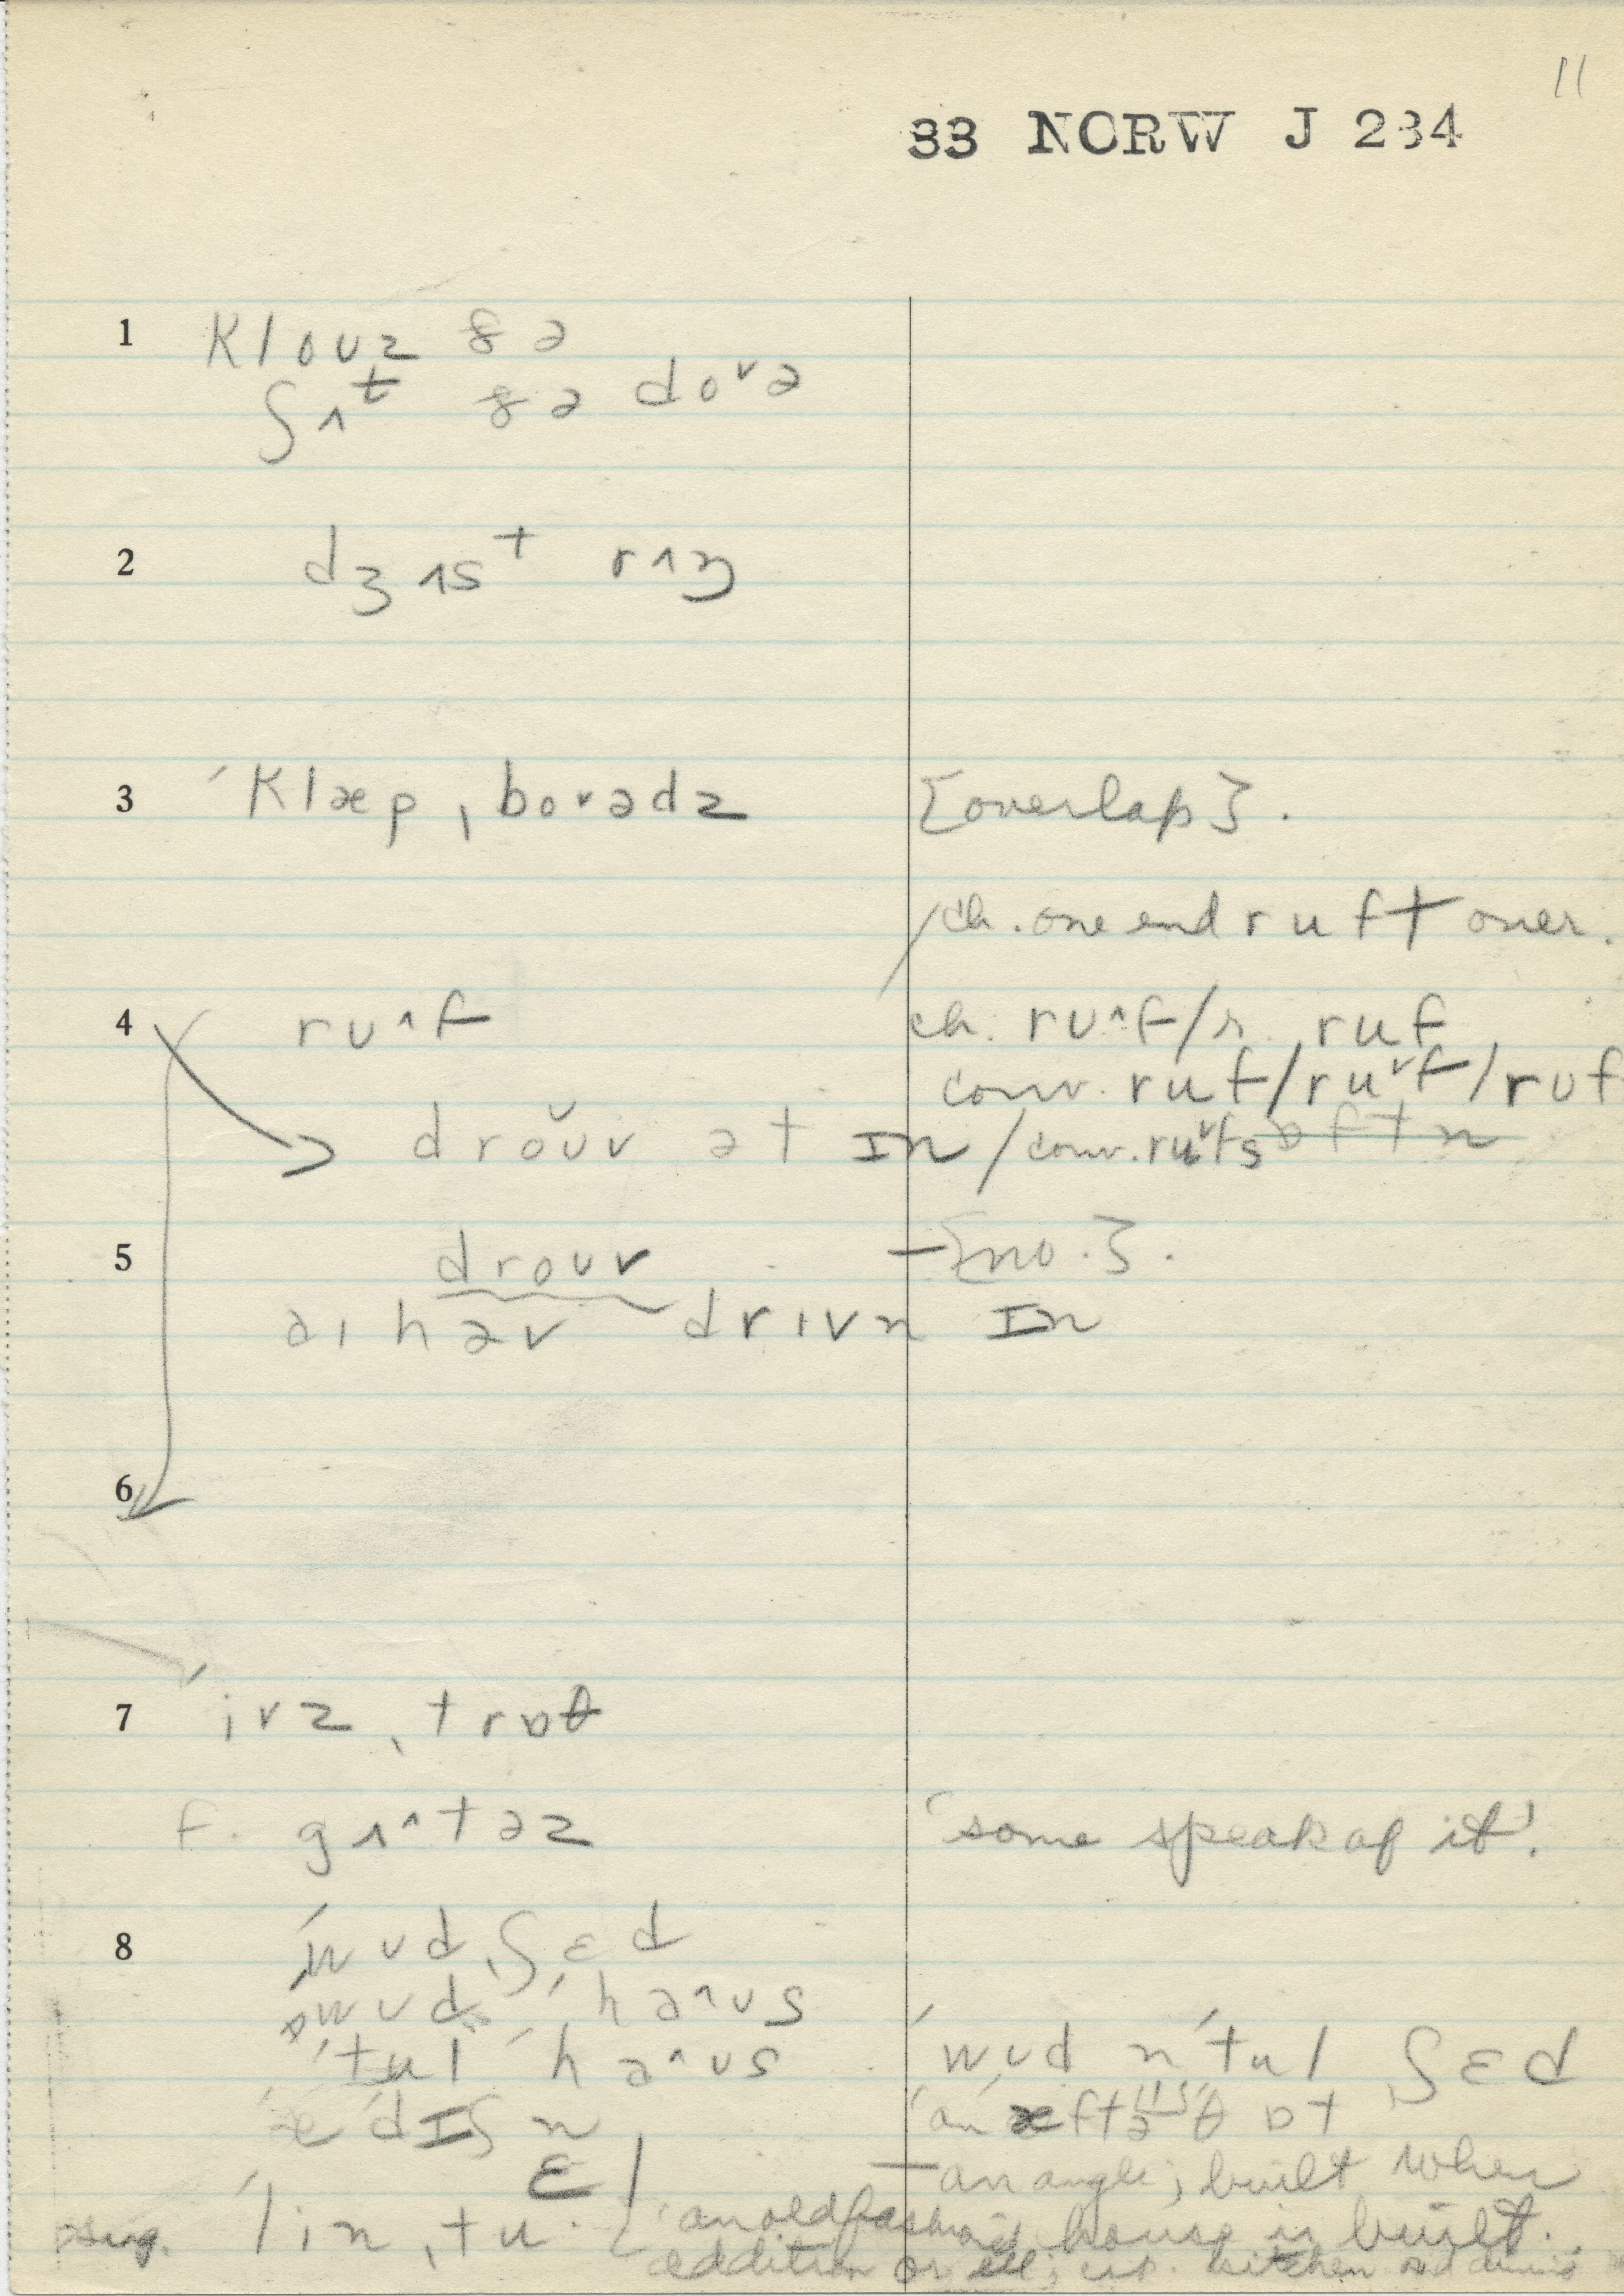 11
33 NORW J 234
1 klouz ðə
ʃʌt ðə do˅ə
2 dʒʌst rʌŋ
3 ˈklæpˌbo˅ədz {overlap}.
/ch. one end ruft over.
4 rʊ^f ch. rʊ^f/r. ruf
conv. ruf/ru˅f/rʊf
droʊv ət ɪn / conv. ru˅fs
5 droʊv —{no.}.
aɪ həv drɪvn ɪn
6
7 ˈivzˌtrɒθ
f. gʌ^təz 'some speak of it'.
8 ˈwʊdˌʃɛd
wʊd ˈha^ʊs
ˈtul ˈha^ʊs ˈwʊd n ˈtul ʃɛd
əˈdɪʃn 'an æftəθɒt
ɛl —an angle; built when
sug. ˈlinˌtu. an old fashioned house is built.
addition or ell; kitchen